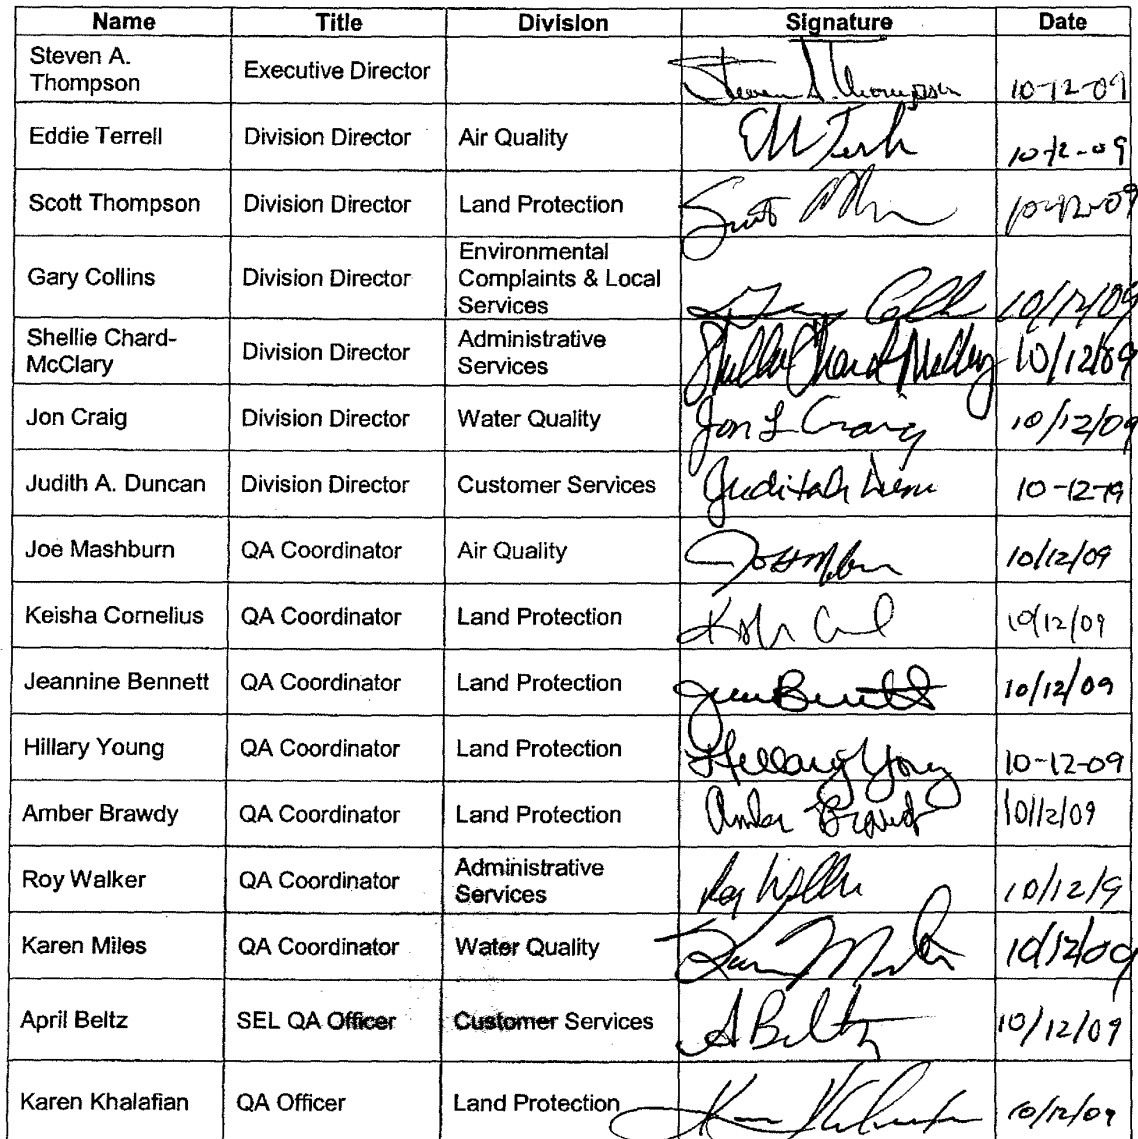 Name Title Division Signature Date
Steven A. Thompson Executive Director Steven A. Thompson 10-12-09
Eddie Terrell Division Director Air Quality 10-12-09
Scott Thompson Division Director Land Protection Scott 10-12-09
Gary Collins Division Director Environmental Complaints & Local Services Gary 10/12/09
Shellie Chard-McClary Division Director Administrative Services Shellie Chard-McClary 10/12/09
Jon Craig Division Director Water Quality Jon L Craig 10/12/09
Judith A. Duncan Division Director Customer Services 10-12-09
Joe Mashburn QA Coordinator Air Quality 10/12/09
Keisha Cornelius QA Coordinator Land Protection 10/12/09
Jeannine Bennett QA Coordinator Land Protection 10/12/09
Hillary Young QA Coordinator Land Protection Hillary Young 10-12-09
Amber Brawdy QA Coordinator Land Protection Amber Brawdy 10/12/09
Roy Walker QA Coordinator Administrative Services Roy 10/12/9
Karen Miles QA Coordinator Water Quality 10/12/09
April Beltz SEL QA Officer Customer Services A Beltz 10/12/09
Karen Khalafian QA Officer Land Protection 10/12/09